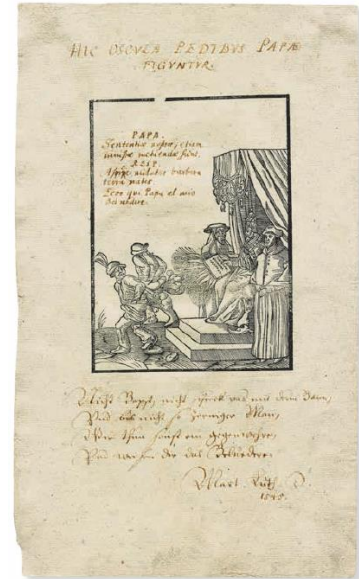 HIC OSCVLA PEDIBVS PAPÆ
FIGVNTVR.
PAPA.
Sententiæ nostræ, etiam
iniustæ metuendæ sunt.
RESP.
Aspice nudatas barbara
terra nates
Ecco qui Papa el mio
bel uedere.
Nicht Bapst, nicht schreck vns mit deim Bann,
Vnd bis nicht so zorniger Man,
Wir thun sonst ein gegenwehre,
Vnd dir das Belvedere.
Mart. Luth. D.
1545.